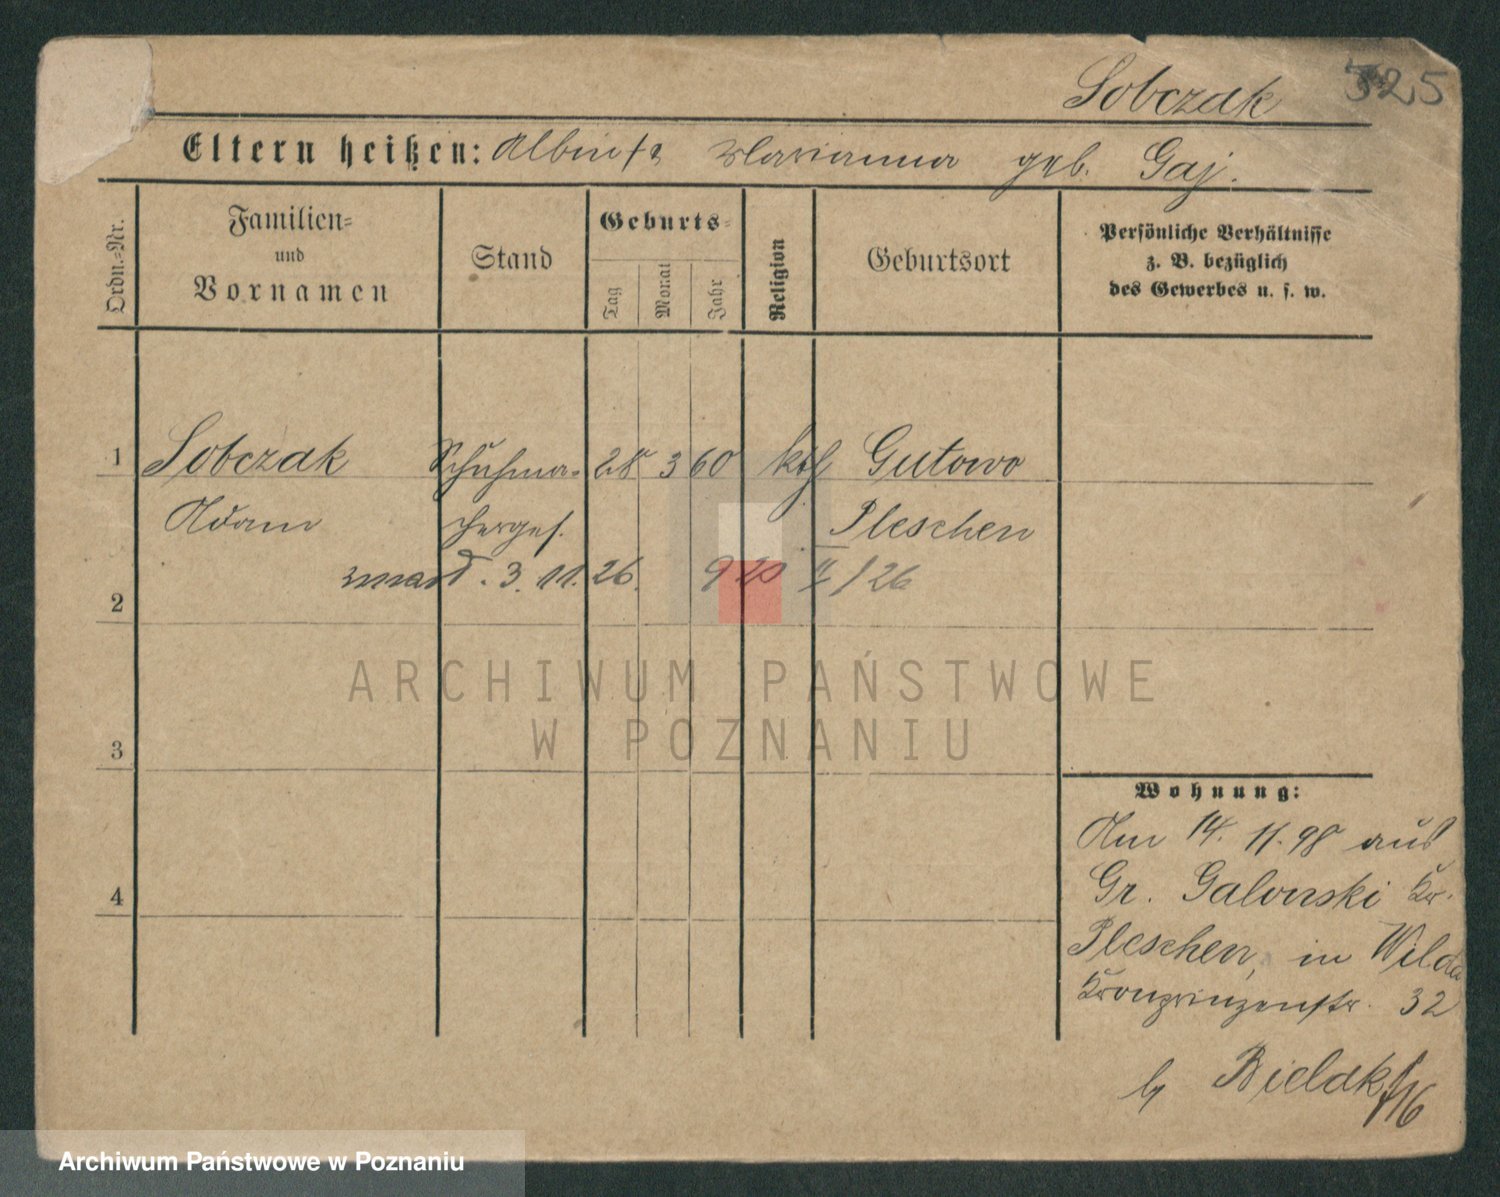 Sobczak 525
Eltern heißen: Albin u. Marianna geb. Gaj.
Ordn.-Nr.
Familien- und Vornamen
Stand
Geburts-
Tag
Monat
Jahr
Religion
Geburtsort
Persönliche Verhältnisse
z. B. bezüglich
des Gewerbes u. s. w.
1 Sobczak Schuhma- 28 3 60 kth Gutowo
Adam cherges. Pleschen
zmarł. 3. 11. 26. 920 II/26
2
ARCHIWUM PAŃSTWOWE
W POZNANIU
3
4
Wohnung:
Am 14. 11. 98 aus
Gr. Galonski Kr.
Pleschen, in Wilda
Kronprinzenstr. 32
b/ Bielak
Archiwum Państwowe w Poznaniu